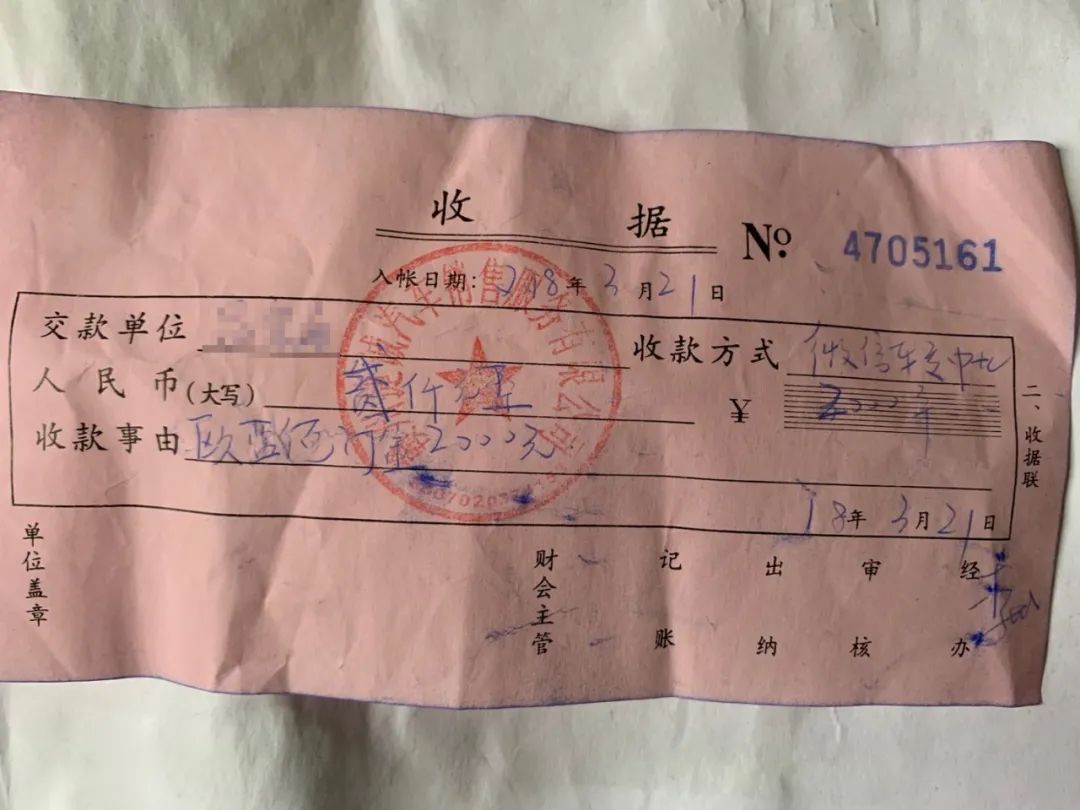 收 据 № 4705161
入帐日期：2018年 3月21日
交款单位 收款方式 微信
人民币(大写) 贰仟元 ¥ 2000
收款事由 欧蓝德订金2000元
18年 3月21日
二、收据联
单位盖章 财会主管 记账 出纳 审核 经办
汽车销售服务有限公司